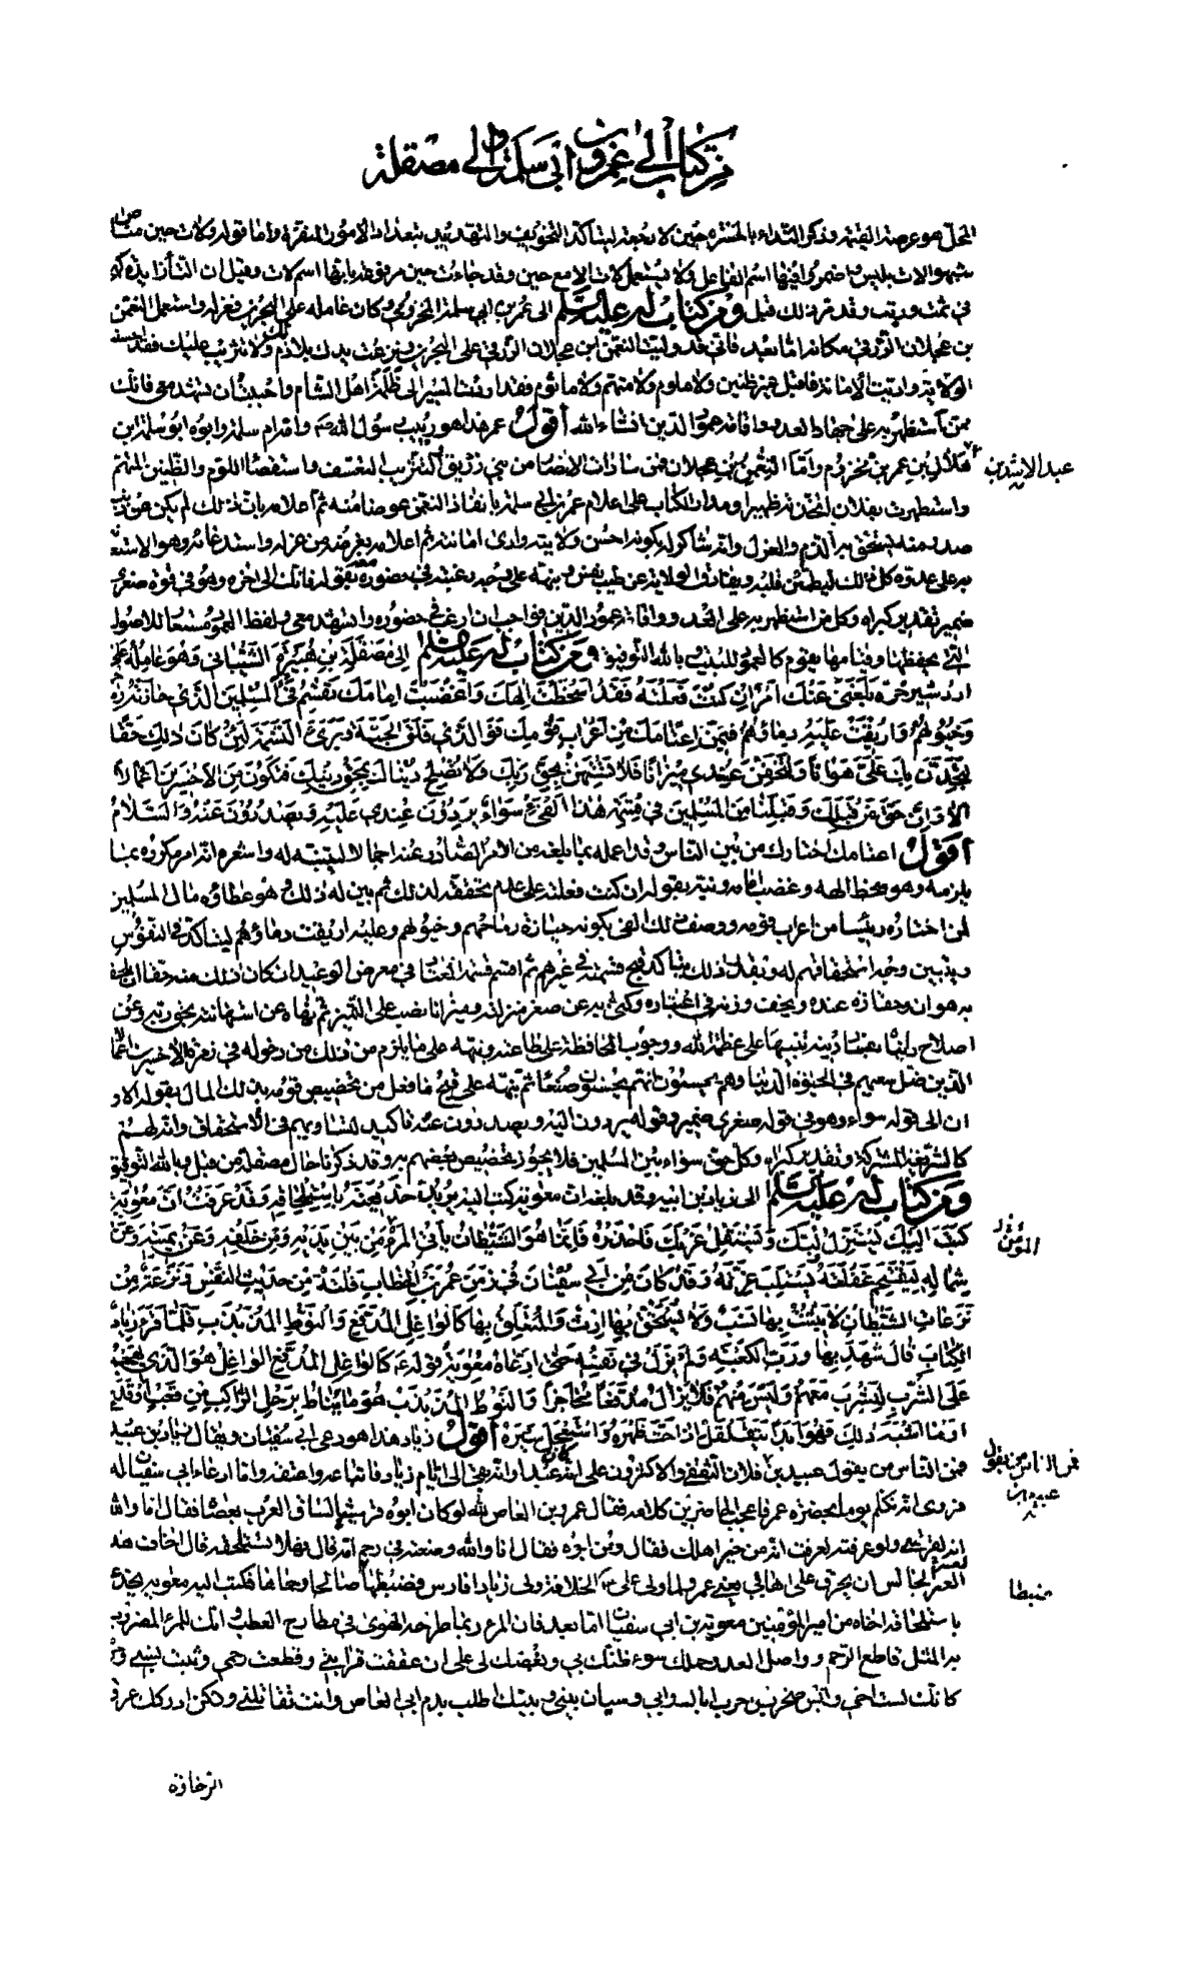 من كتاب له الى عمر بن ابي سلمة والى مصقلة
المحل هو عرصة القيمة وذكر النداء بالحسرة حين لا تأكيد التخويف والتهديد بتعداد الامور المنفرة واما قوله ولات حين مناص
شبهوا لات بليس واضمروا فيها اسم الفاعل ولا يستعمل لات الا مع حين وقد جاءت حين مرفوعة بانها اسم لات وقيل ان التاء زايدة كهي
في ثمت وربت وقد مر ذلك قبل ومن كتاب له عليه السلم الى عمر بن ابي سلمة المخزومي وكان عامله على البحرين فعزله واستعمل النعمن
بن عجلان الزرقي مكانه اما بعد فاني قد وليت النعمن ابن عجلان الزرقي على البحرين ونزعت يدك بلا ذم لك ولا تثريب عليك فقد احسنت
الولاية واديت الامانة فاقبل غير ظنين ولا ملوم ولا متهم ولا ماثوم فقد اردت المسير الى ظلمة اهل الشام واحببت ان تشهد معي فانك
ممن استظهر به على جهاد العدو واقامة عمود الدين انشاء الله اقول عمر هذا هو ربيب رسول الله ص وامه ام سلمة وابوه ابو سلمة ابن
عبد الاسد بن
هلال بن عمر بن مخزوم واما النعمن بن عجلان فمن سادات الانصار من بني زريق والتثريب التعنيف واستقصاء اللوم والظنين المتهم
واستظهرت بفلان اتخذته ظهيرا ومدار الكتاب على اعلام عمر بن ابي سلمة بانفاذ النعمن عوضا منه ثم اعلامه بان ذلك لم يكن عن ذنب
صدر منه يستحق به الذم والعزل وانه شاكر له بكونه احسن ولايته وادى امانته ثم اعلامه بغرضه من عزله واستدعائه وهو الاستظهار
به على عدوه كل ذلك ليطمئن قلبه ويفارق الولاية عن طيب نفس ونبهه على وجه رغبته في حضوره معه بقوله فانك الى اخره وهو في قوة صغرى
ضمير تقدير كبراه وكل من استظهر به على العدو واقامة عمود الدين فواجب ان ارغب في حضوره وان يشهد معي ولفظ العمود مستعار للاصول
التي بحفظها وقيامها يقوم كالعمود للبيت وبالله التوفيق ومن كتاب له عليه السلم الى مصقلة بن هبيرة الشيباني وهو عامله على
اردشير خرة بلغني عنك امر ان كنت فعلته فقد اسخطت الهك واغضبت امامك انك تقسم فيء المسلمين الذي حازته رماحهم
وخيولهم واريقت عليه دماؤهم فيمن اعتامك من اعراب قومك فو الذي فلق الحبة وبرئ النسمة لئن كان ذلك حقا
لتجدن بك علي هوانا ولتخفن عندي ميزانا فلا تستهن بحق ربك ولا تصلح دنياك بمحق دينك فتكون من الاخسرين اعمالا
الا وان حق من قبلك وقبلنا من المسلمين في قسمة هذا الفيء سواء يردون عندي عليه ويصدرون عنه والسلام
اقول اعتامك اختارك من بين الناس وقد اعلمه بما بلغه من الامر الصادر عنه اجمالا لينبه له واشعره انه امر مكروه بما
يلزمه وهو سخط الهه وغضب امامه ونبه بقوله ان كنت فعلته على عدم تحققه لذلك ثم بين له ذلك وهو عطاؤه مال المسلمين
لمن اختاره رئيسا من اعراب قومه ووصف ذلك الفيء بكونه حيازة رماحهم وخيولهم وعليه اريقت دماؤهم ليتأكد في النفوس
ويتبين وجه استحقاقهم له وبقدر ذلك يتأكد قبح قسمته في غيرهم ثم اقسم قسمه المعتاد في معرض الوعيد ان كان ذلك منه حقا ان يلحقه
به هوان وحقارة عنده ويخف وزنه في اعتباره وكنى به عن صغر منزلته وميزانا نصب على التميز ثم نهاه عن استهانته بحق ربه وعن
اصلاح دنياه بفساد دينه تنبيها على عظمة الله ووجوب المحافظة على طاعته ونبهه على ما يلزم من ذلك من دخوله في زمرة الاخسرين اعمالا
الذين ضل سعيهم في الحيوة الدنيا وهم يحسبون انهم يحسنون صنعا ثم نبهه على قبح ما فعل من تخصيص قومه بذلك المال بقوله الا و
ان الى قوله سواء وهو في قوة صغرى ضمير وقوله يردون اليه ويصدرون عنه تاكيد لتساويهم في الاستحقاق وانه لهم
كالشريعة المشتركة وتقدير كبراه وكل حق سواء بين المسلمين فلا يجوز تخصيص بعضهم به وقد ذكرنا حال مصقلة من قبل وبالله التوفيق
ومن كتاب له عليه السلم الى زياد بن ابيه وقد بلغه ان معوية كتب اليه يريد خديعته باستلحاقه وقد عرفت ان معوية
كتب اليك يستزل لبك ويستفل غربك فاحذره فانما هو الشيطان يأتي المرء من بين يديه ومن خلفه وعن يمينه وعن
المؤمن
شماله ليقتحم غفلته ويستلب غرته وقد كان من ابي سفيان في زمن عمر بن الخطاب فلتة من حديث النفس ونزغة من
نزغات الشيطان لا يثبت بها نسب ولا يستحق بها ارث والمتعلق بها كالواغل المدفع والنوط المذبذب فلما قرء زياد
الكتاب قال شهد بها ورب الكعبة ولم يزل في نفسه حتى ادعاه معوية قوله ع كالواغل المدفع الواغل هو الذي يهجم
على الشرب ليشرب معهم وليس منهم فلا يزال مدفعا محاجزا والنوط المذبذب هو ما يناط برحل الراكب من قعب او قدح
او ما اشبه ذلك فهو ابدا يتقلقل اذا حث ظهره واستعجل سيره اقول زياد هذا هو دعي ابي سفيان ويقال زياد بن عبيد
فمن الناس من يقول عبيد بن فلان الثقفي والاكثرون على انه كان عبدا وانه بقي الى ايام زياد فابتاعه واعتقه واما ادعاء ابي سفيان له
فمن الناس من يقول
عبيد بن
فروى انه تكلم يوما بحضرة عمر فاعجب الحاضرين كلامه فقال عمرو بن العاص لله لو كان ابوه قرشيا لساق العرب بعصاه فقال اما والله
انه لقرشي ولو عرفته لعرفت انه من خير اهلك فقال ومن ابوه فقال انا والله وضعته في رحم امه قال فهلا تستلحقه قال اخاف هذا
العير الجالس ان يخرق علي اهابي يعني عمر ولما ولى علي ع الخلافة ولى زيادا فارس فضبطها ضبطا صالحا وحماها فكتب اليه معوية يخدعه
ضبطا
باستلحاقه اخاه من امير المؤمنين معوية بن ابي سفيان اما بعد فان المرء ربما طرحه الهوى في مطارح العطب وانك للمرء المضروب
به المثل قاطع الرحم وواصل العدو حملك سوء ظنك بي وبغضك لي على ان عققت قرابتي وقطعت رحمي وبتت نسبي و
كانك لست اخي وليس صخر بن حرب اباك وابي وسيان بيني وبينك اطلب بدم ابي العاص وانت تقاتلني ولكن ادركك عرق
الرخاوة